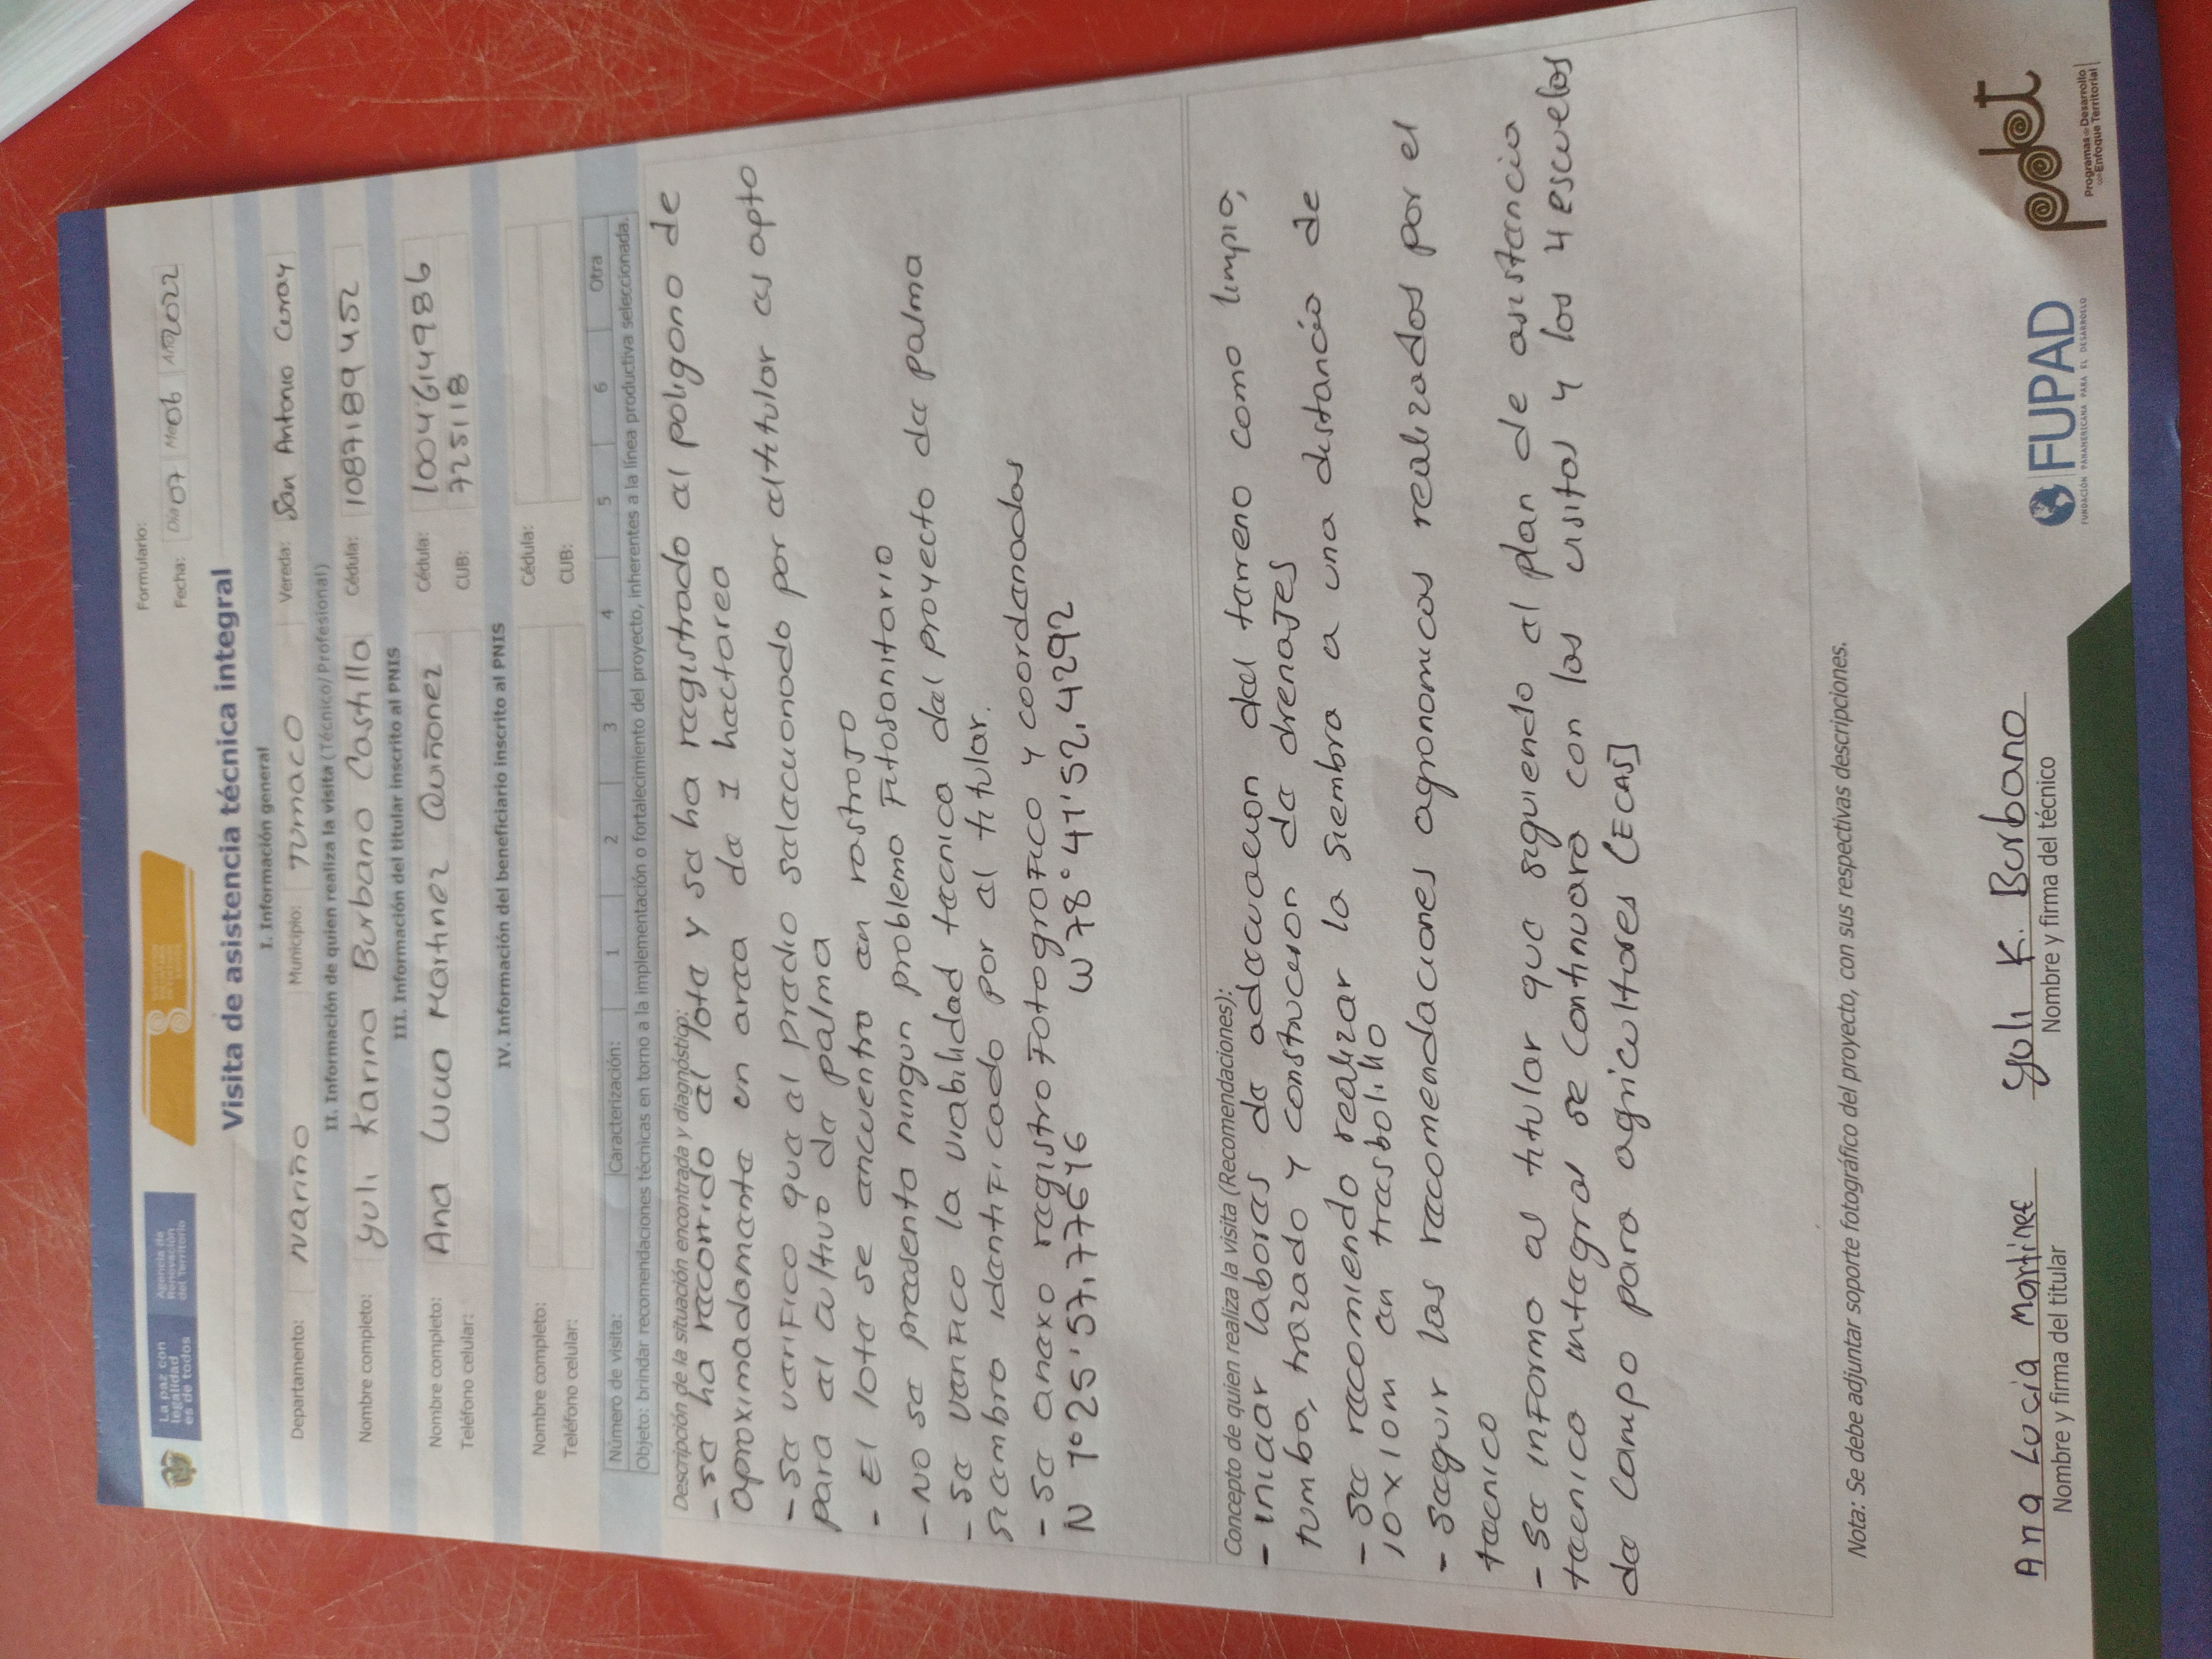 La paz con
legalidad
es de todos
Agencia de
Renovación
del Territorio
Formulario:
Fecha: Día 07 Mes 06 Año 2022
Visita de asistencia técnica integral
I. Información general
Departamento: Nariño Municipio: Tumaco Vereda: San Antonio Curay
II. Información de quien realiza la visita (Técnico/Profesional)
Nombre completo: Yuli Karina Burbano Castillo Cédula: 1087189452
III. Información del titular inscrito al PNIS
Nombre completo: Ana Lucia Martinez Quiñonez Cédula: 1004614986
Teléfono celular: CUB: 725118
IV. Información del beneficiario inscrito al PNIS
Nombre completo: Cédula:
Teléfono celular: CUB:
Número de visita: Caracterización: 1 2 3 4 5 6 Otra
Objeto: brindar recomendaciones técnicas en torno a la implementación o fortalecimiento del proyecto, inherentes a la línea productiva seleccionada.
Descripción de la situación encontrada y diagnóstico:
- se ha recorrido el lote y se ha registrado el poligono de
aproximadamente un area de 1 hectarea
- Se verifico que el predio seleccionado por el titular es apto
para el cultivo de palma
- El lote se encuentra en rastrojo
- No se presenta ningun problema Fitosanitario
- Se verifico la viabilidad tecnica del proyecto de palma
siembra identificado por el titular.
- Se anexo registro Fotografico y coordenadas
N 1°25'57.77646 W 78°41'52.4292
Concepto de quien realiza la visita (Recomendaciones):
- iniciar labores de adecuacion del terreno como limpia,
tumba, trazado y construccion de drenajes
- Se recomienda realizar la siembra a una distancia de
10x10m en trasbolillo
- Seguir las recomendaciones agronomicas realizados por el
tecnico
- Se informa al titular que siguiendo el plan de asistencia
tecnica integral se continuara con las visitas y las 4 escuelas
de campo para agricultores (ECAS)
Nota: Se debe adjuntar soporte fotográfico del proyecto, con sus respectivas descripciones.
Ana Lucia Martinez Yuli K. Burbano
Nombre y firma del titular Nombre y firma del técnico
FUPAD
FUNDACIÓN PANAMERICANA PARA EL DESARROLLO
pdet
Programas de Desarrollo
con Enfoque Territorial